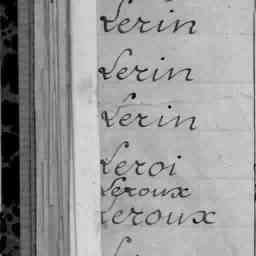 Lerin
Lerin
Lerin
Leroi
Leroux
Leroux